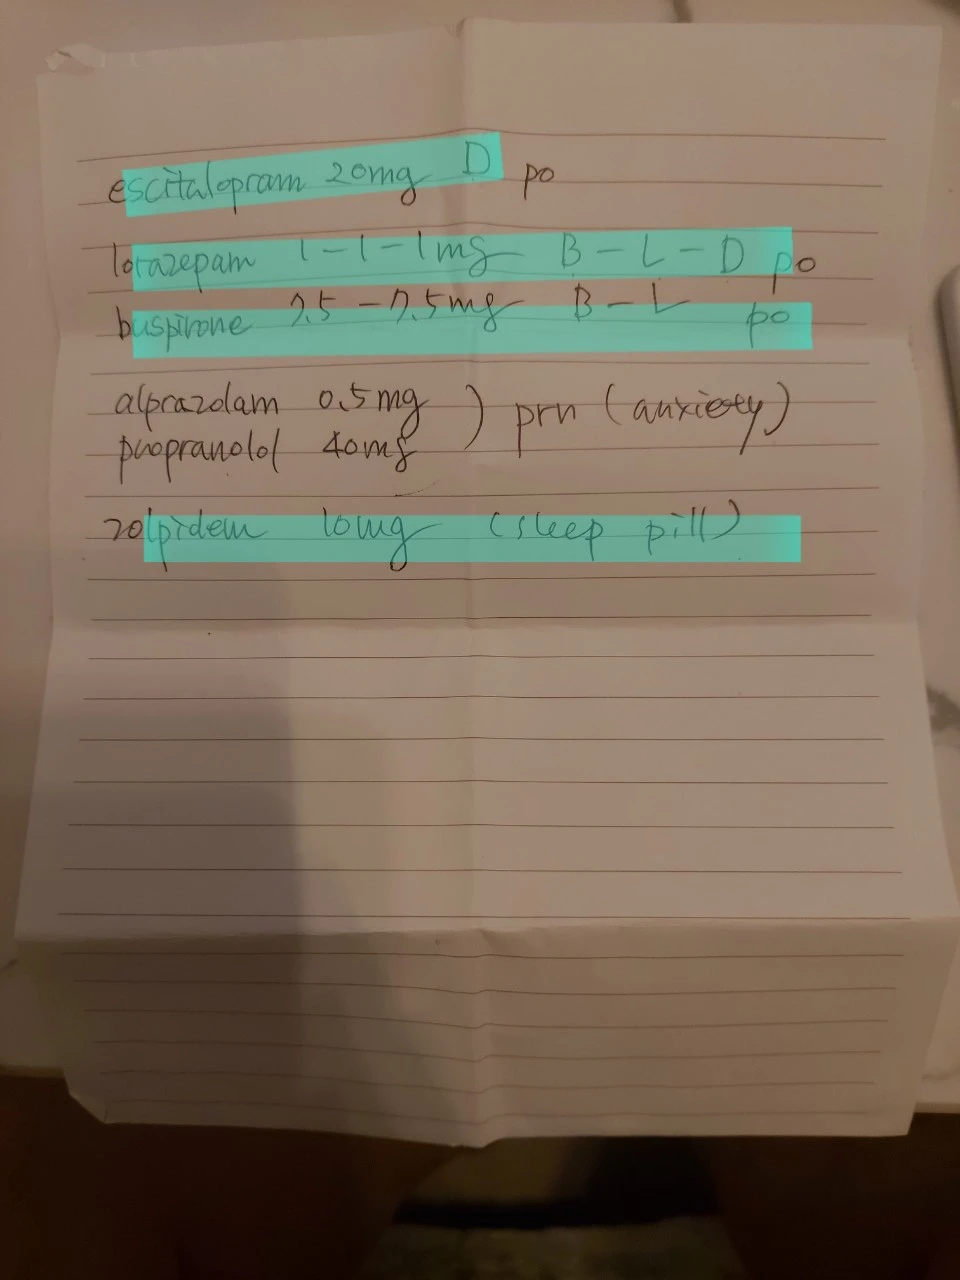 escitalopram 20mg D po
lorazepam 1-1-1mg B-L-D po
buspirone 7.5-7.5mg B-L po
alprazolam 0.5mg ) prn (anxiety)
propranolol 40mg
zolpidem 10mg (sleep pill)